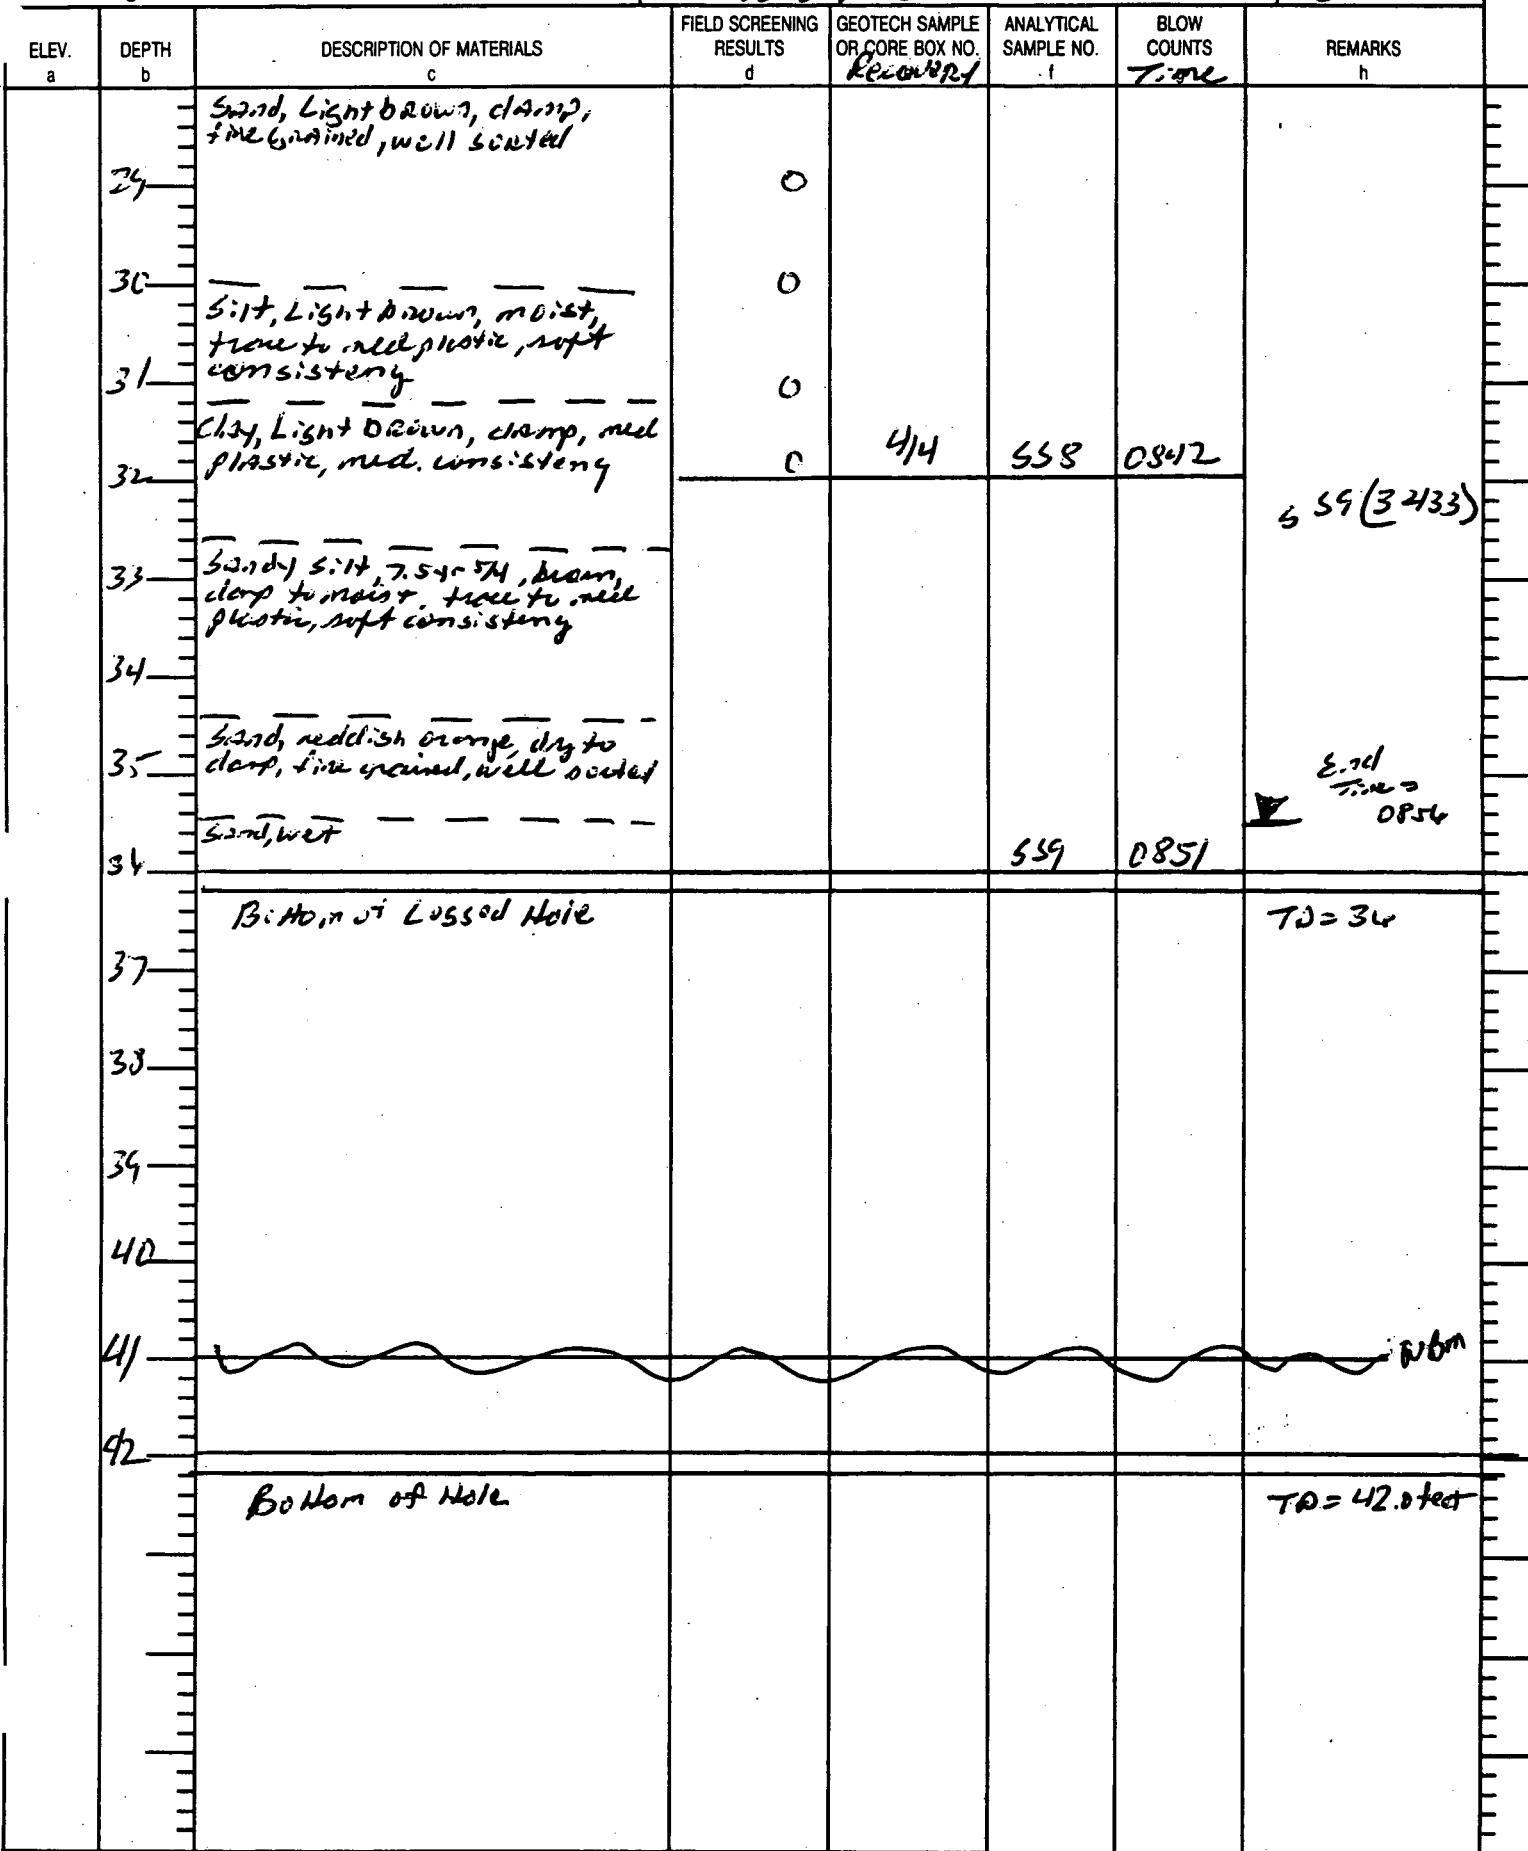 ELEV. a
DEPTH b
DESCRIPTION OF MATERIALS c
FIELD SCREENING RESULTS d
GEOTECH SAMPLE OR CORE BOX NO. Recovery
ANALYTICAL SAMPLE NO. f
BLOW COUNTS Time
REMARKS h
Sand, Light brown, damp,
fine grained, well sorted
29 0
30 0
Silt, Light brown, moist,
trace to med plastic, soft
consisteny
31 0
Clay, Light Brown, damp, med
plastic, med. consisteny
32 0 4/4 SS8 0842
SS9 (32-133)
33
Sandy silt, 7.5yr 5/4, brown,
damp to moist, trace to med
plastic, soft consisteny
34
Sand, reddish orange, dry to
damp, fine grained, well sorted
35
End
Time =
0856
Sand, wet
36 SS9 0851
Bottom of Logged Hole TD = 36
37
38
39
40
41
42
Bottom of Hole TD = 42.0 feet